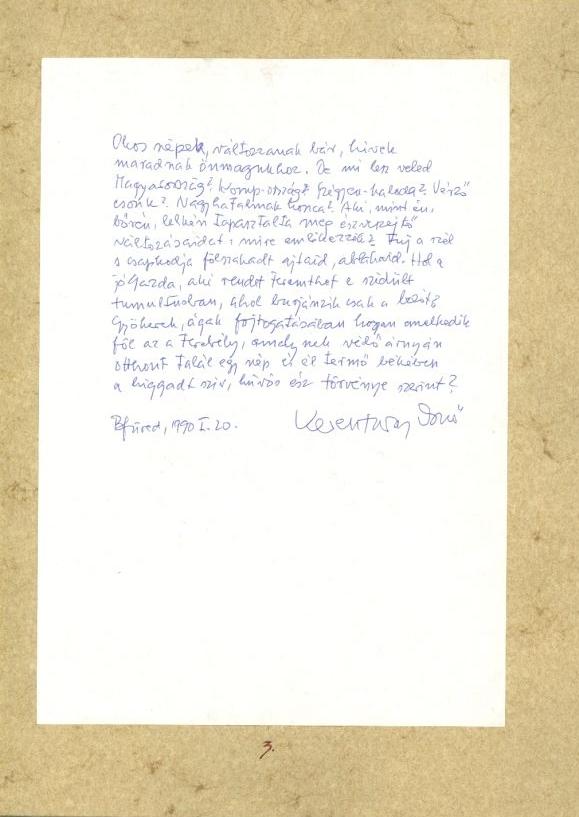 Okos népek, változzanak bár, hívek
maradnak önmagukhoz. De mi lesz veled
Magyarország? Komp-ország? Szégyen-kaloda? Vérző
csonk? Nagyhatalmak konca? Aki, mint én,
bőrén, lelkén tapasztalta meg észveszejtő
változásaidat: mire emlékezzék? Fúj a szél
s csapkodja fölszakadt ajtaid, ablakaid. Hol a
jó Gazda, aki rendet teremthet e szédült
tumultusban, ahol burjánzik csak a bozót?
Gyökerek, ágak fojtogatásában hogyan emelkedik
föl az a Terebély, amelynek védő árnyán
otthont talál egy nép és él termő békében
a higgadt szív, hűvös ész törvénye szerint?
Bfüred, 1990 I. 20. Keresztury Dezső
3.